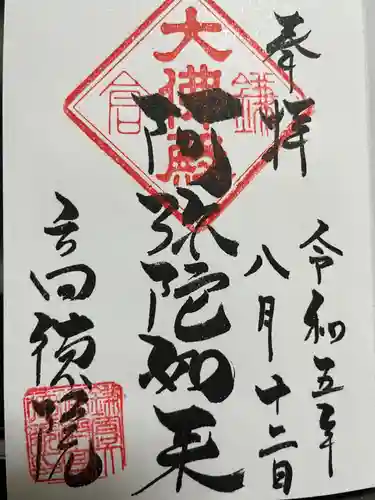 奉拝
令和五年
八月十二日
鎌倉
大佛殿
阿弥陀如来
高徳院